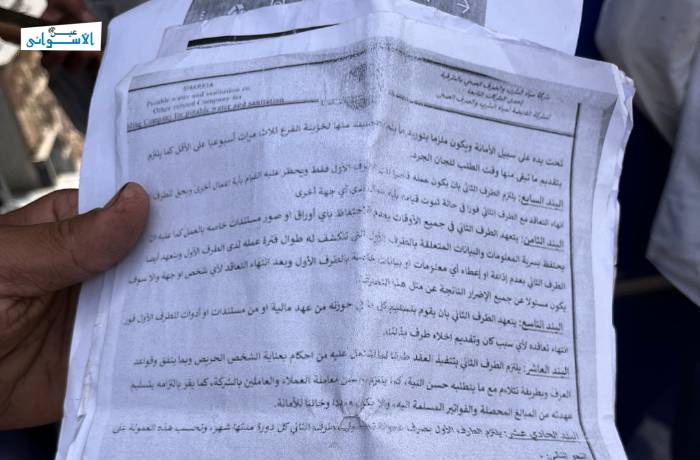 عين
الأسواني
SHARKIA
Potable water and sanitation co.
One of related Company for
Holding Company for potable water and sanitation
شركة مياه الشرب والصرف الصحي بالشرقية
إحدى الشركات التابعة
للشركة القابضة لمياه الشرب والصرف الصحي
تحت يده على سبيل الأمانة ويكون ملزما بتوريد ما يتم منها لخزينة الفرع ثلاث مرات أسبوعيا على الأقل كما يلتزم
بتقديم ما تبقى منها وقت الطلب للجان الجرد.
البند السابع: يلتزم الطرف الثاني بان يكون عمله الطرف الأول فقط ويحظر عليه القيام بأية اعمال أخرى ويحق للطرف
انهاء التعاقد مع الطرف الثاني فورا في حالة ثبوت قيامه أي جهة أخرى
البند الثامن: يتعهد الطرف الثاني في جميع الأوقات بعدم الاحتفاظ باي أوراق او صور مستندات خاصه بالعمل كما عليه ان
يحتفظ بسرية المعلومات والبيانات المتعلقة بالطرف الأول التي تتكشف له طوال فترة عمله لدى الطرف الأول ويتعهد أيضا
الطرف الثاني بعدم إذاعة او إعطاء أي معلومات او بيانات خاصة بالطرف الأول وبعد انتهاء التعاقد لأي شخص او جهة والا سوف
يكون مسئولا عن جميع الإضرار الناتجة عن مثل هذا
البند التاسع: يتعهد الطرف الثاني بان يقوم بتسليم كل ما في حوزته من عهد مالية او من مستندات او أدوات للطرف الأول فور
انتهاء تعاقده لأي سبب كان وتقديم اخلاء طرف بذلك.
البند العاشر: يلتزم الطرف الثاني بتنفيذ العقد طبقا لما اشتمل عليه من احكام بعناية الشخص الحريص وبما يتفق وقواعد
العرف وبطريقة تتلاءم مع ما يتطلبه حسن النية، كما يلتزم بحسن معاملة العملاء والعاملين بالشركة، كما يقر بالتزامه بتسليم
عهدته من المبالغ المحصلة والفواتير المسلمة اليه، والا يكون مبددا وخائنا للأمانة.
البند الحادي عشر: يلتزم الطرف الأول بصرف عمولة للطرف الثاني كل دورة مدتها شهر، وتحسب هذه العمولة على
النحو التالي: